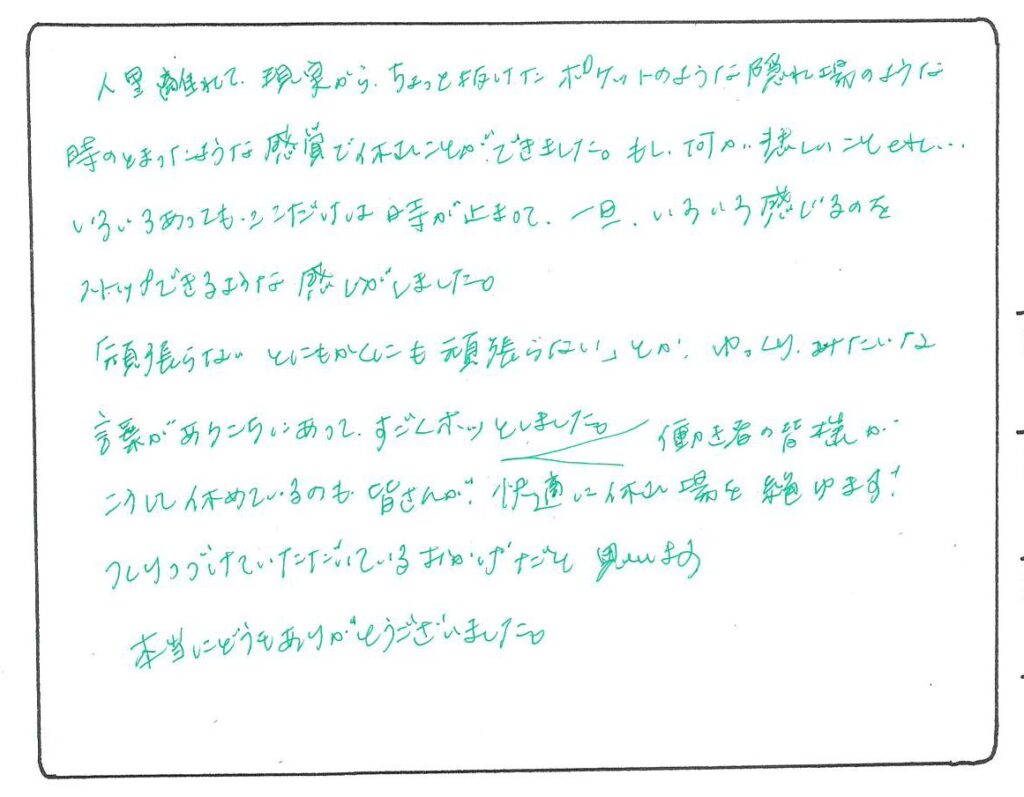 人里離れて、現実から、ちょっと抜けたポケットのような隠れ場のような
時のとまったような感覚で休むことができました。もし、何か、悲しいことやれ…
いろいろあっても、ここだけは時が止まって、一旦、いろいろ感じるのを
ストップできるような感じがしました。
「頑張らない とにもかくにも頑張らない」とか、ゆっくり、みたいな
言葉があちこちにあって、すごくホッとしました。
働き者の皆様が、
こうして休めているのも、皆さんが、快適に休む場を絶ゆまず
つくりつづけていただいているおかげだと思います
本当にどうもありがとうございました。